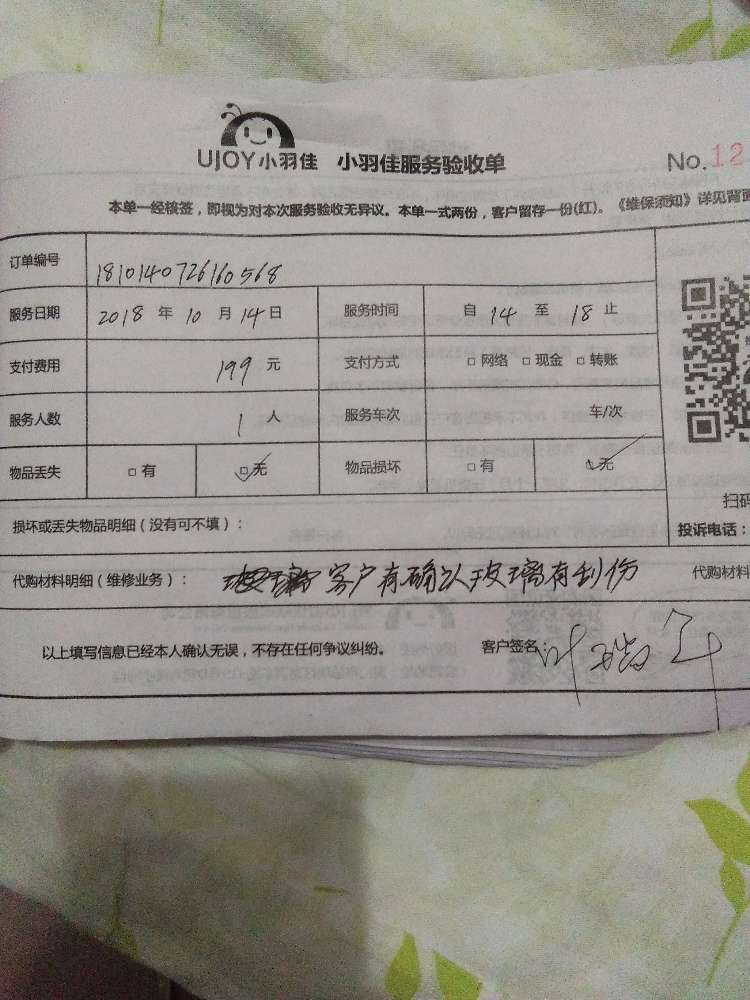 UJOY小羽佳 小羽佳服务验收单 No.12
本单一经核签，即视为对本次服务验收无异议。本单一式两份，客户留存一份(红)。《维保须知》详见背面
订单编号 1810140726160568
服务日期 2018 年 10 月 14 日 服务时间 自 14 至 18 止
支付费用 199 元 支付方式 □ 网络 □ 现金 □ 转账
服务人数 1 人 服务车次 车/次
物品丢失 □ 有 ☑ 无 物品损坏 □ 有 ☑ 无
扫码
损坏或丢失物品明细（没有可不填）： 投诉电话：
代购材料明细（维修业务）： 客户有确认玻璃有刮份 代购材料
以上填写信息已经本人确认无误，不存在任何争议纠纷。 客户签名：